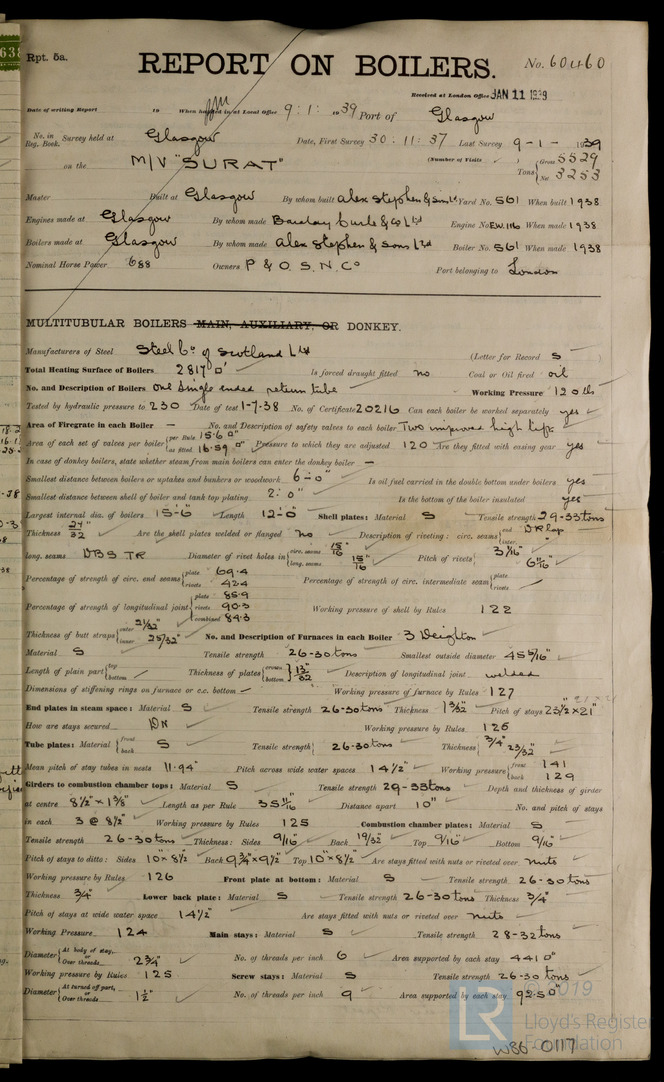 Rpt. 5a.
REPORT ON BOILERS.
No. 60460
Received at London Office JAN 11 1939
Date of writing Report 19 When handed in at Local Office 9:1: 1939 Port of Glasgow
No. in Reg. Book. Survey held at Glasgow Date, First Survey 30:11:37 Last Survey 9-1-1939
on the M/V "SURAT" (Number of Visits ) Tons { Gross 5529 Net 3253
Master Built at Glasgow By whom built Alex Stephen & Sons Ld Yard No. 561 When built 1938
Engines made at Glasgow By whom made Barclay Curle & Co Ltd Engine No EW.1116 When made 1938
Boilers made at Glasgow By whom made Alex Stephen & Sons Ltd Boiler No. 561 When made 1938
Nominal Horse Power 688 Owners P & O. S. N. Co Port belonging to London
MULTITUBULAR BOILERS MAIN, AUXILIARY, OR DONKEY.
Manufacturers of Steel Steel Co. of Scotland Ltd (Letter for Record S )
Total Heating Surface of Boilers 2817 □' Is forced draught fitted no Coal or Oil fired oil
No. and Description of Boilers one single ended return tube Working Pressure 120 lbs
Tested by hydraulic pressure to 230 Date of test 1-7-38 No. of Certificate 20216 Can each boiler be worked separately yes
Area of Firegrate in each Boiler — No. and Description of safety valves to each boiler Two improved high lift
Area of each set of valves per boiler { per Rule 15.6 □" as fitted 16.59 □" Pressure to which they are adjusted 120 Are they fitted with easing gear yes
In case of donkey boilers, state whether steam from main boilers can enter the donkey boiler —
Smallest distance between boilers or uptakes and bunkers or woodwork 6'-0" Is oil fuel carried in the double bottom under boilers yes
Smallest distance between shell of boiler and tank top plating 2'-0" Is the bottom of the boiler insulated yes
Largest internal dia. of boilers 15'-6" Length 12'-0" Shell plates: Material S Tensile strength 29-33 tons
Thickness 27/32" Are the shell plates welded or flanged no Description of riveting: circ. seams { end DR lap inter.
long. seams DBS TR Diameter of rivet holes in { circ. seams 15/16 long. seams 15/16" Pitch of rivets { 3 1/16" 6 7/16"
Percentage of strength of circ. end seams { plate 69.4 rivets 42.4 Percentage of strength of circ. intermediate seam { plate rivets
Percentage of strength of longitudinal joint { plate 85.9 rivets 90.3 combined 89.3 Working pressure of shell by Rules 122
Thickness of butt straps { outer 21/32" inner 25/32" No. and Description of Furnaces in each Boiler 3 Deighton
Material S Tensile strength 26-30 tons Smallest outside diameter 45 5/16"
Length of plain part { top bottom Thickness of plates { crown bottom } 13/32" Description of longitudinal joint welded
Dimensions of stiffening rings on furnace or c.c. bottom — Working pressure of furnace by Rules 127
End plates in steam space: Material S Tensile strength 26-30 tons Thickness 1 3/32" Pitch of stays 23 1/2 × 21"
How are stays secured DN Working pressure by Rules 125
Tube plates: Material { front back S Tensile strength } 26-30 tons Thickness { 3/4" 23/32"
Mean pitch of stay tubes in nests 11.94" Pitch across wide water spaces 14 1/2" Working pressure { front 141 back 129
Girders to combustion chamber tops: Material S Tensile strength 29-33 tons Depth and thickness of girder
at centre 8 1/2" × 1 3/8" Length as per Rule 35 1/16" Distance apart 10" No. and pitch of stays
in each 3 @ 8 1/2" Working pressure by Rules 125 Combustion chamber plates: Material S
Tensile strength 26-30 tons Thickness: Sides 9/16" Back 19/32" Top 9/16" Bottom 9/16"
Pitch of stays to ditto: Sides 10" × 8 1/2" Back 9 3/4" × 9 1/2" Top 10" × 8 1/2" Are stays fitted with nuts or riveted over nuts
Working pressure by Rules 126 Front plate at bottom: Material S Tensile strength 26-30 tons
Thickness 3/4" Lower back plate: Material S Tensile strength 26-30 tons Thickness 3/4"
Pitch of stays at wide water space 14 1/2" Are stays fitted with nuts or riveted over nuts
Working Pressure 124 Main stays: Material S Tensile strength 28-32 tons
Diameter { At body of stay, or Over threads 2 3/4" No. of threads per inch 6 Area supported by each stay 441 □"
Working pressure by Rules 125 Screw stays: Material S Tensile strength 26-30 tons
Diameter { At turned off part, or Over threads 1 1/2" No. of threads per inch 9 Area supported by each stay 92.5 □"
© 2019
Lloyd's Register
Foundation
W86-0117